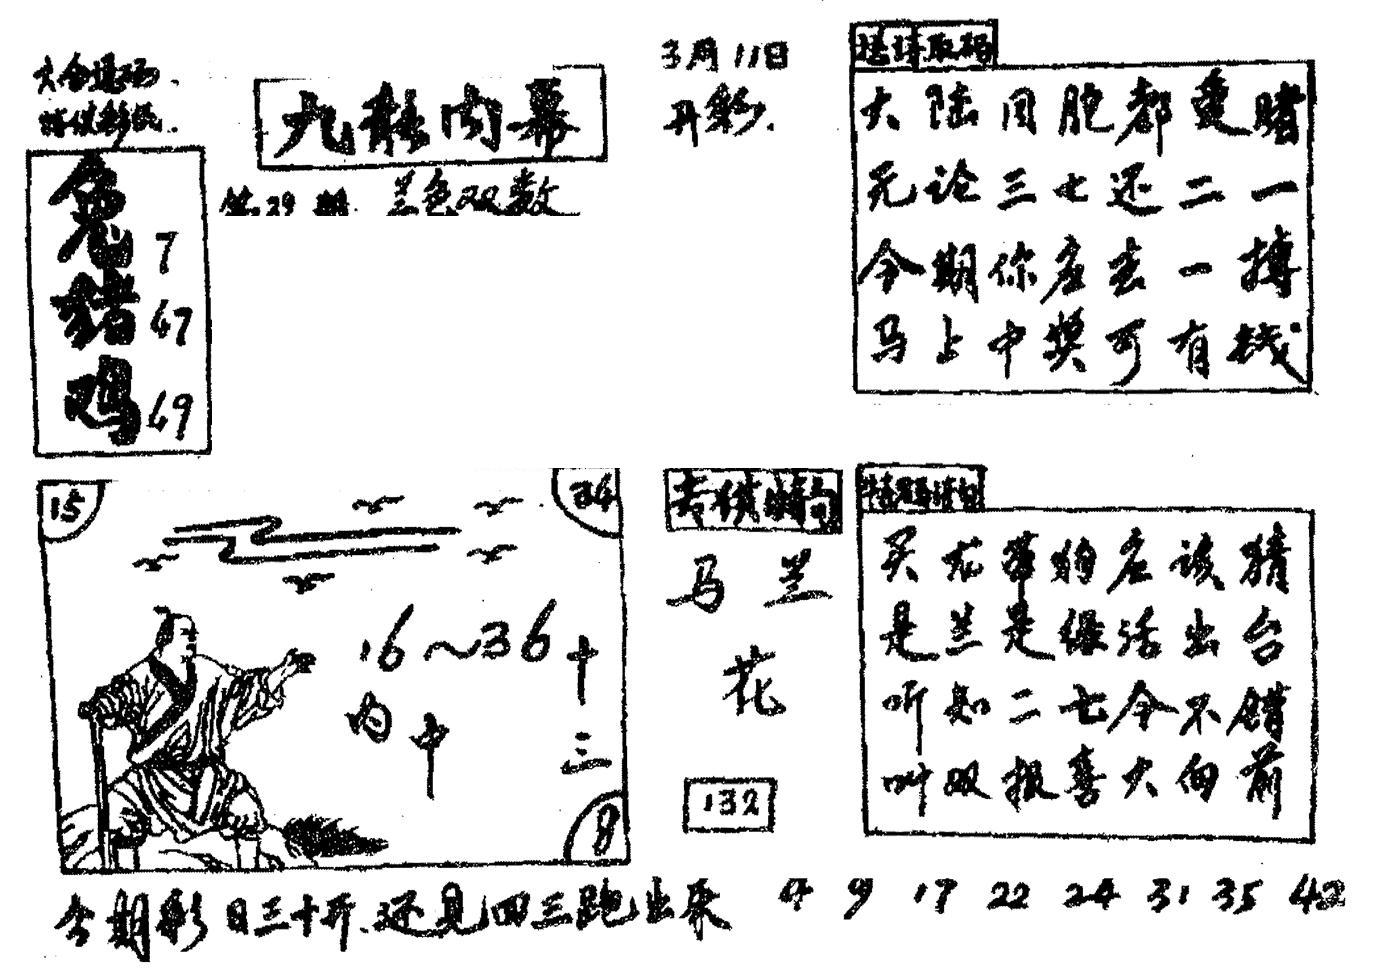 九龙内幕
3月11日
开彩.
六合通码.
请供彩民.
第29期 兰色双数
兔 7
猪 47
鸡 49
取码
大陆同胞都爱赌
无论三七还二一
今期你应去一搏
马上中奖可有钱
15
34
16~36
内中
十三
8
马兰花
132
买龙带狗应该猜
是兰是绿活出台
听知二七今不错
叫双报喜大向前
今期彩日三十开.还见四三跑出来
4 9 17 22 24 31 35 42